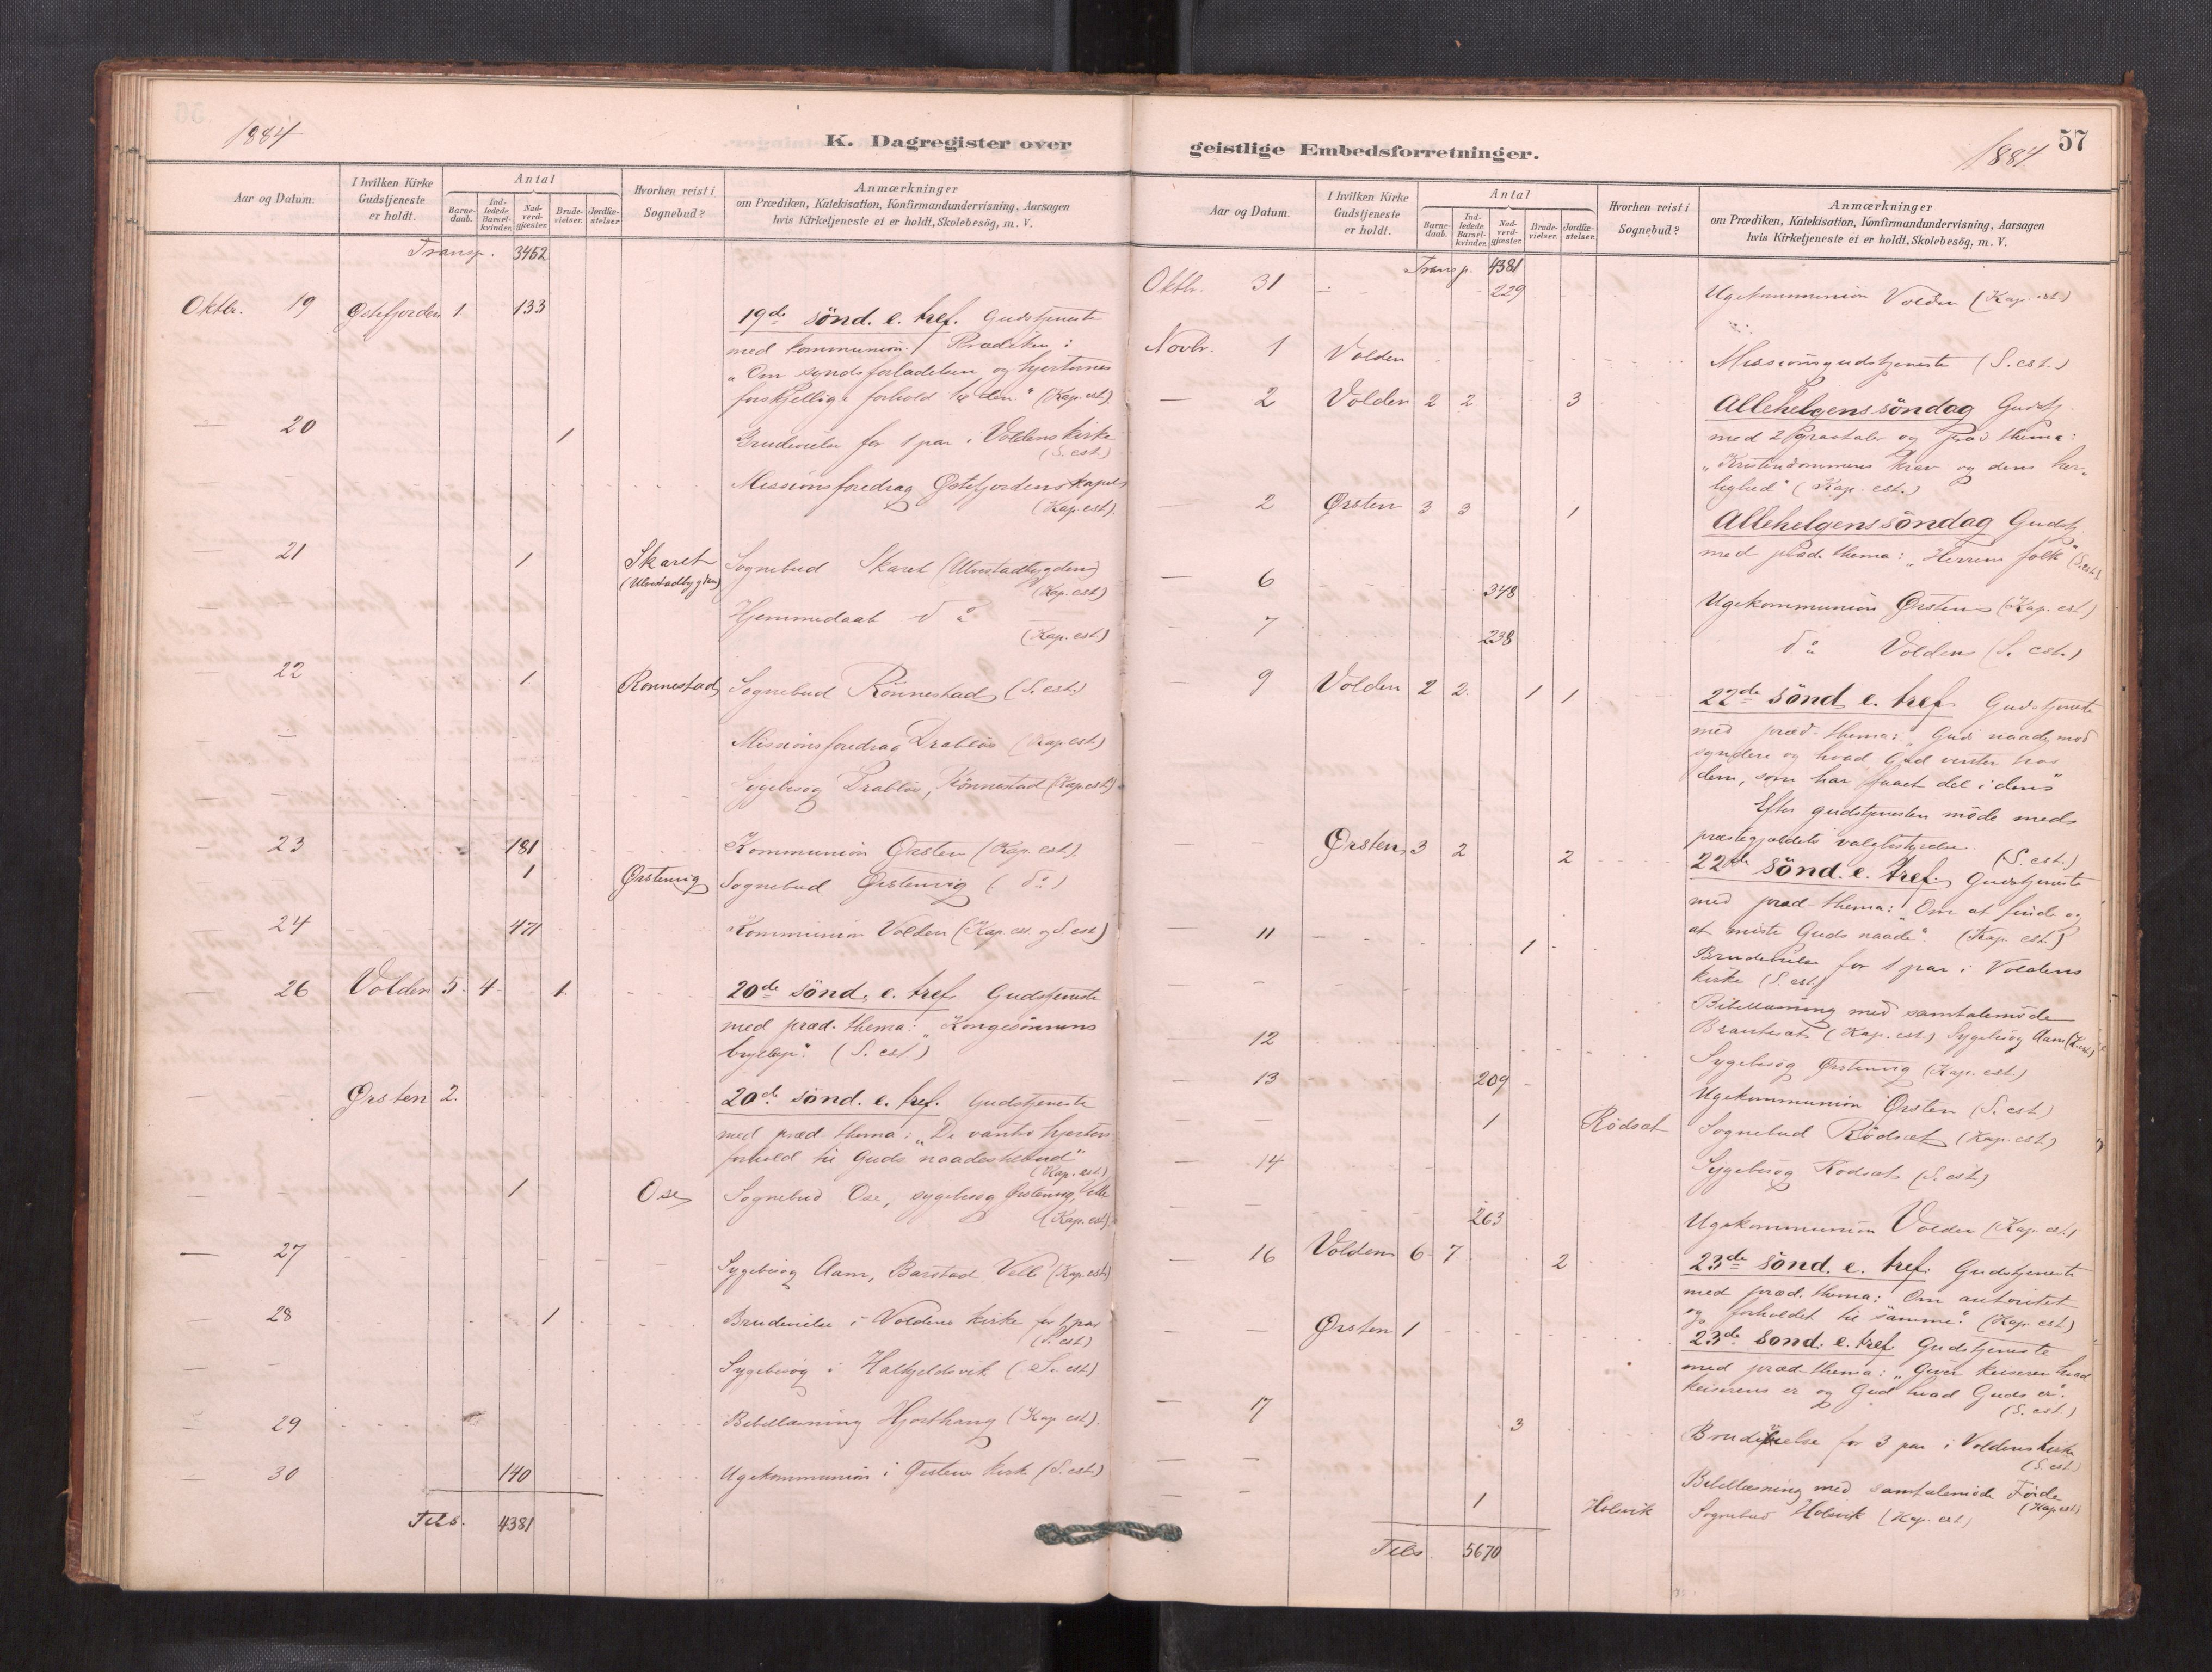 1884
K. Dagregister over
Aar og Datum.
I hvilken Kirke
Gudstjeneste
er holdt.
Antal
Barne-
daab.
Ind-
ledede
Barsel-
kvinder.
Nad-
verd-
gjæster.
Brude-
vielser.
Jordfæ-
stelser
Hvorhen reist i
Sognebud?
Anmærkninger
om Prædiken, Katekisation, Konfirmandundervisning, Aarsagen
hvis Kirketjeneste ei er holdt, Skolebesög, m. V.
Transp. 3462
Oktbr. 19 Østefjorden 1 133 19de sönd. e. tref. Gudstjeneste
med kommunion. Prædiken:
"Om syndsforladelsen og hjerternes
forskjellige forhold til den." (Kap. est).
— 20 1 Brudevielse for 1 par i Voldens kirke
(S. est.)
Missionsforedrag Østefjordens kapel
(Kap. est).
— 21 1 Skaret Sognebud Skaret (Ulvestadbygden)
(Ulvestadbygden) (Kap. est)
Hjemmedaab do
(Kap. est)
— 22 1 Rönnestad Sognebud Rönnestad (S. est.)
Missionsforedrag Drabløs (Kap. est)
Sygebesög Drabløs, Rönnestad (Kap. est)
— 23 181 Kommunion Ørsten (Kap. est.)
1 Ørstenvig Sognebud Ørstenvig (do)
— 24 471 Kommunion Volden (Kap. est. og S. est)
— 26 Volden 5. 4 1 20de sönd. e. tref. Gudstjeneste
med præd. thema: "Kongesönnens
bryllup". (S. est)
— Ørsten 2. 20de sönd. e. tref. Gudstjeneste
med præd. thema: "De vantro hjerters
forhold til Guds naadestilbud"
(Kap. est)
1 Ose Sognebud Ose, sygebesög Ørstenvig, Velle
(Kap. est).
— 27 Sygebesög Aam, Barstad, Velle (Kap. est)
— 28 1 Brudevielse i Voldens kirke for 1 par
(S. est)
Sygebesög i Halkjeldsvik (S. est)
— 29 Bibellæsning Hjorthaug (Kap. est).
— 30 140 Ugekommunion i Ørstens kirke (S. est)
Tils. 4381
geistlige Embedsforretninger.
1884
57
Aar og Datum.
I hvilken Kirke
Gudstjeneste
er holdt.
Antal
Barne-
daab.
Ind-
ledede
Barsel-
kvinder.
Nad-
verd-
gjæster.
Brude-
vielser.
Jordfæ-
stelser.
Hvorhen reist i
Sognebud?
Anmærkninger
om Prædiken, Katekisation, Konfirmandundervisning, Aarsagen
hvis Kirketjeneste ei er holdt, Skolebesög, m. V.
Transp. 4381
Oktbr. 31 229 Ugekommunion Volden (Kap. est)
Novbr. 1 Volden Missionsgudstjeneste (S. est.)
— 2 Volden 2 2 3 Allehelgenssöndag Gudstj.
med 2 gravtaler og præd. thema:
"Kristendommens krav og dens her-
lighed" (Kap. est.)
— 2 Ørsten 3 3 1 Allehelgenssöndag Gudstj.
med præd. thema: "Herrens folk" (S. est.)
— 6 348 Ugekommunion Ørsten (Kap. est)
— 7 238 do Volden (S. est.)
— 9 Volden 2 2. 1 1 22de sönd. e. tref. Gudstjeneste
med præd. thema: "Guds naade mod
syndere og hvad Gud venter hos
dem, som har faaet del i den"
Efter gudstjenesten möde med
præstegjældets valgbestyrelse.
(S. est.)
— Ørsten 3 2 2 22de sönd. e. tref. Gudstjeneste
med præd. thema: "Om at finde og
at miste Guds naade". (Kap. est.)
— 11 1 Brudevielse for 1 par i Voldens
kirke (S. est)
Bibellæsning med samtalemöde
(Kap. est.) Sygebesög Aam (K. est)
— 12 Sygebesög Ørstenvig (Kap. est.)
— 13 209 Ugekommunion Ørsten (S. est)
1 Rödsæt Sognebud Rödsæt (Kap. est)
— 14 Sygebesög Rödsæt (S. est)
263 Ugekommunion Volden (Kap. est.)
— 16 Volden 6. 7 2 23de sönd. e. tref. Gudstjeneste
med præd. thema: "Om autoritet
og forholdet til samme". (Kap. est)
— — Ørsten 1 23de sönd. e. tref. Gudstjeneste
med præd. thema: "Giver keiseren hvad
keiserens er og Gud hvad Guds er".
(S. est.)
— 17 3 Brudevielse for 3 par i Voldens kirke
(S. est)
— — Bibellæsning med samtalemöde Förde
(Kap. est)
1 Holsvik Sognebud Holsvik (Kap. est)
Tils 5670